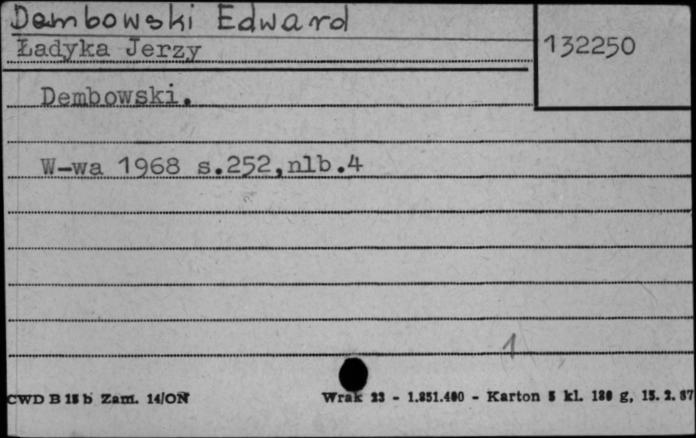 Dembowski Edward
Ładyka Jerzy
132250
Dembowski.
W-wa 1968 s.252,nlb.4
1
CWD B 15 b Zam. 14/ON
Wrak 23 - 1.851.400 - Karton 5 kl. 180 g, 15. 2. 67